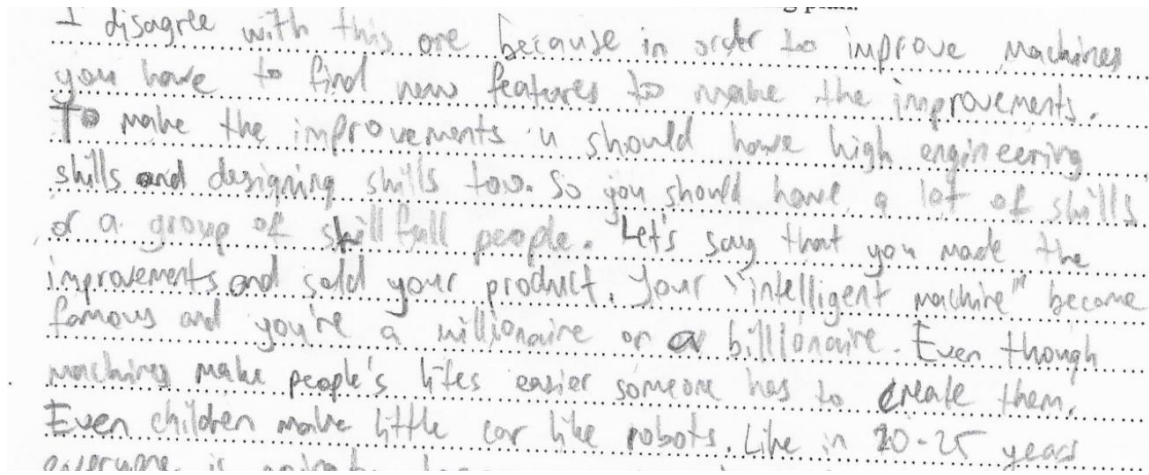 plan.
I disagree with this one because in order to improve machines
you have to find new features to make the improvements.
To make the improvements u should have high engineering
skills and designing skills too. So you should have a lot of skills
or a group of skillfull people. Let's say that you made the
improvements and sold your product. Your "intelligent machine" become
famous and you're a millionaire or a billionaire. Even though
machines make people's lifes easier someone has to create them.
Even children make little car like robots. Like in 20-25 years
everyone is going to